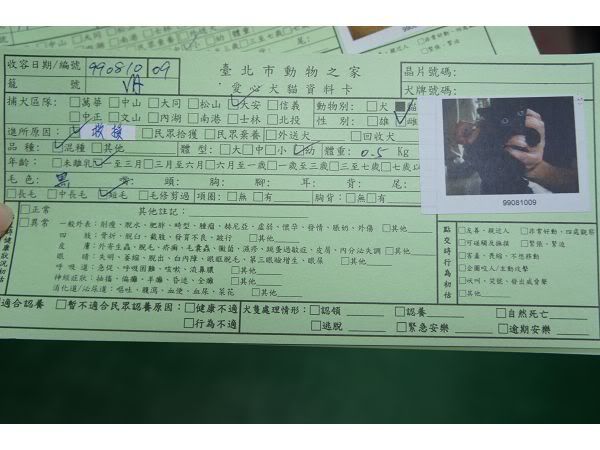 收容日期/編號 990810 09 臺北市動物之家 晶片號碼:
籠 號 VH 愛心犬貓資料卡 犬牌號碼:
捕犬區隊: □萬華 □中山 □大同 □松山 ☑大安 □信義 動物別: □犬 ■貓
□中正 □文山 □內湖 □南港 □士林 □北投 性 別: □雄 ☑雌
進所原因: ☑ 救援 □民眾拾獲 □民眾棄養 □外送犬 □回收犬
品 種: ☑混種 □其他 體 型: □大 □中 □小 ☑幼 體重: 0.5 Kg
年齡: □未離乳 ☑至三月 □三月至六月 □六月至一歲 □一歲至三歲 □三至七歲 □七歲以
毛 色: 黑 頭: 胸: 腳: 耳: 背: 尾:
□長毛 □中長毛 ☑短毛 □毛修剪過 項圈: □無 □有 胸背: □無 □有
99081009
□正常 其他註記:
□異常 一般外表: 削瘦、脫水、肥胖、畸型、腫瘤、赫尼亞、虛弱、懷孕、發情、脹奶、外傷 □其他
四 肢: 骨折、脫臼、截肢、發育不良、跛行 □其他
皮 膚: 外寄生蟲、脫毛、疥癬、毛囊蟲、黴菌、濕疹、跳蚤過敏症、皮屑、內分泌失調 □其他
眼 睛: 失明、萎縮、脫出、白內障、眼眶脫毛、第三眼瞼增生、眼屎 □其他
呼 吸 道: 急促、呼吸困難、咳嗽、流鼻膿 □其他
神經症狀: 抽搐、偏癱、半癱、昏迷、全癱 □其他
消化道/泌尿道: 嘔吐、腹瀉、血便、血尿、菜花 □其他
點交時行為初估
□友善、親近人 □非常好動、四處觀察
□可碰觸及撫摸 □緊張、緊迫
□害羞、畏縮、不想移動
□企圖咬人/主動攻擊
□吠叫、哭號、發出威脅聲
□其他
適合認養 □暫不適合民眾認養原因: □健康不適 犬隻處理情形: □認領 □認養 □自然死亡
□行為不適 □逃脫 □緊急安樂 □逾期安樂